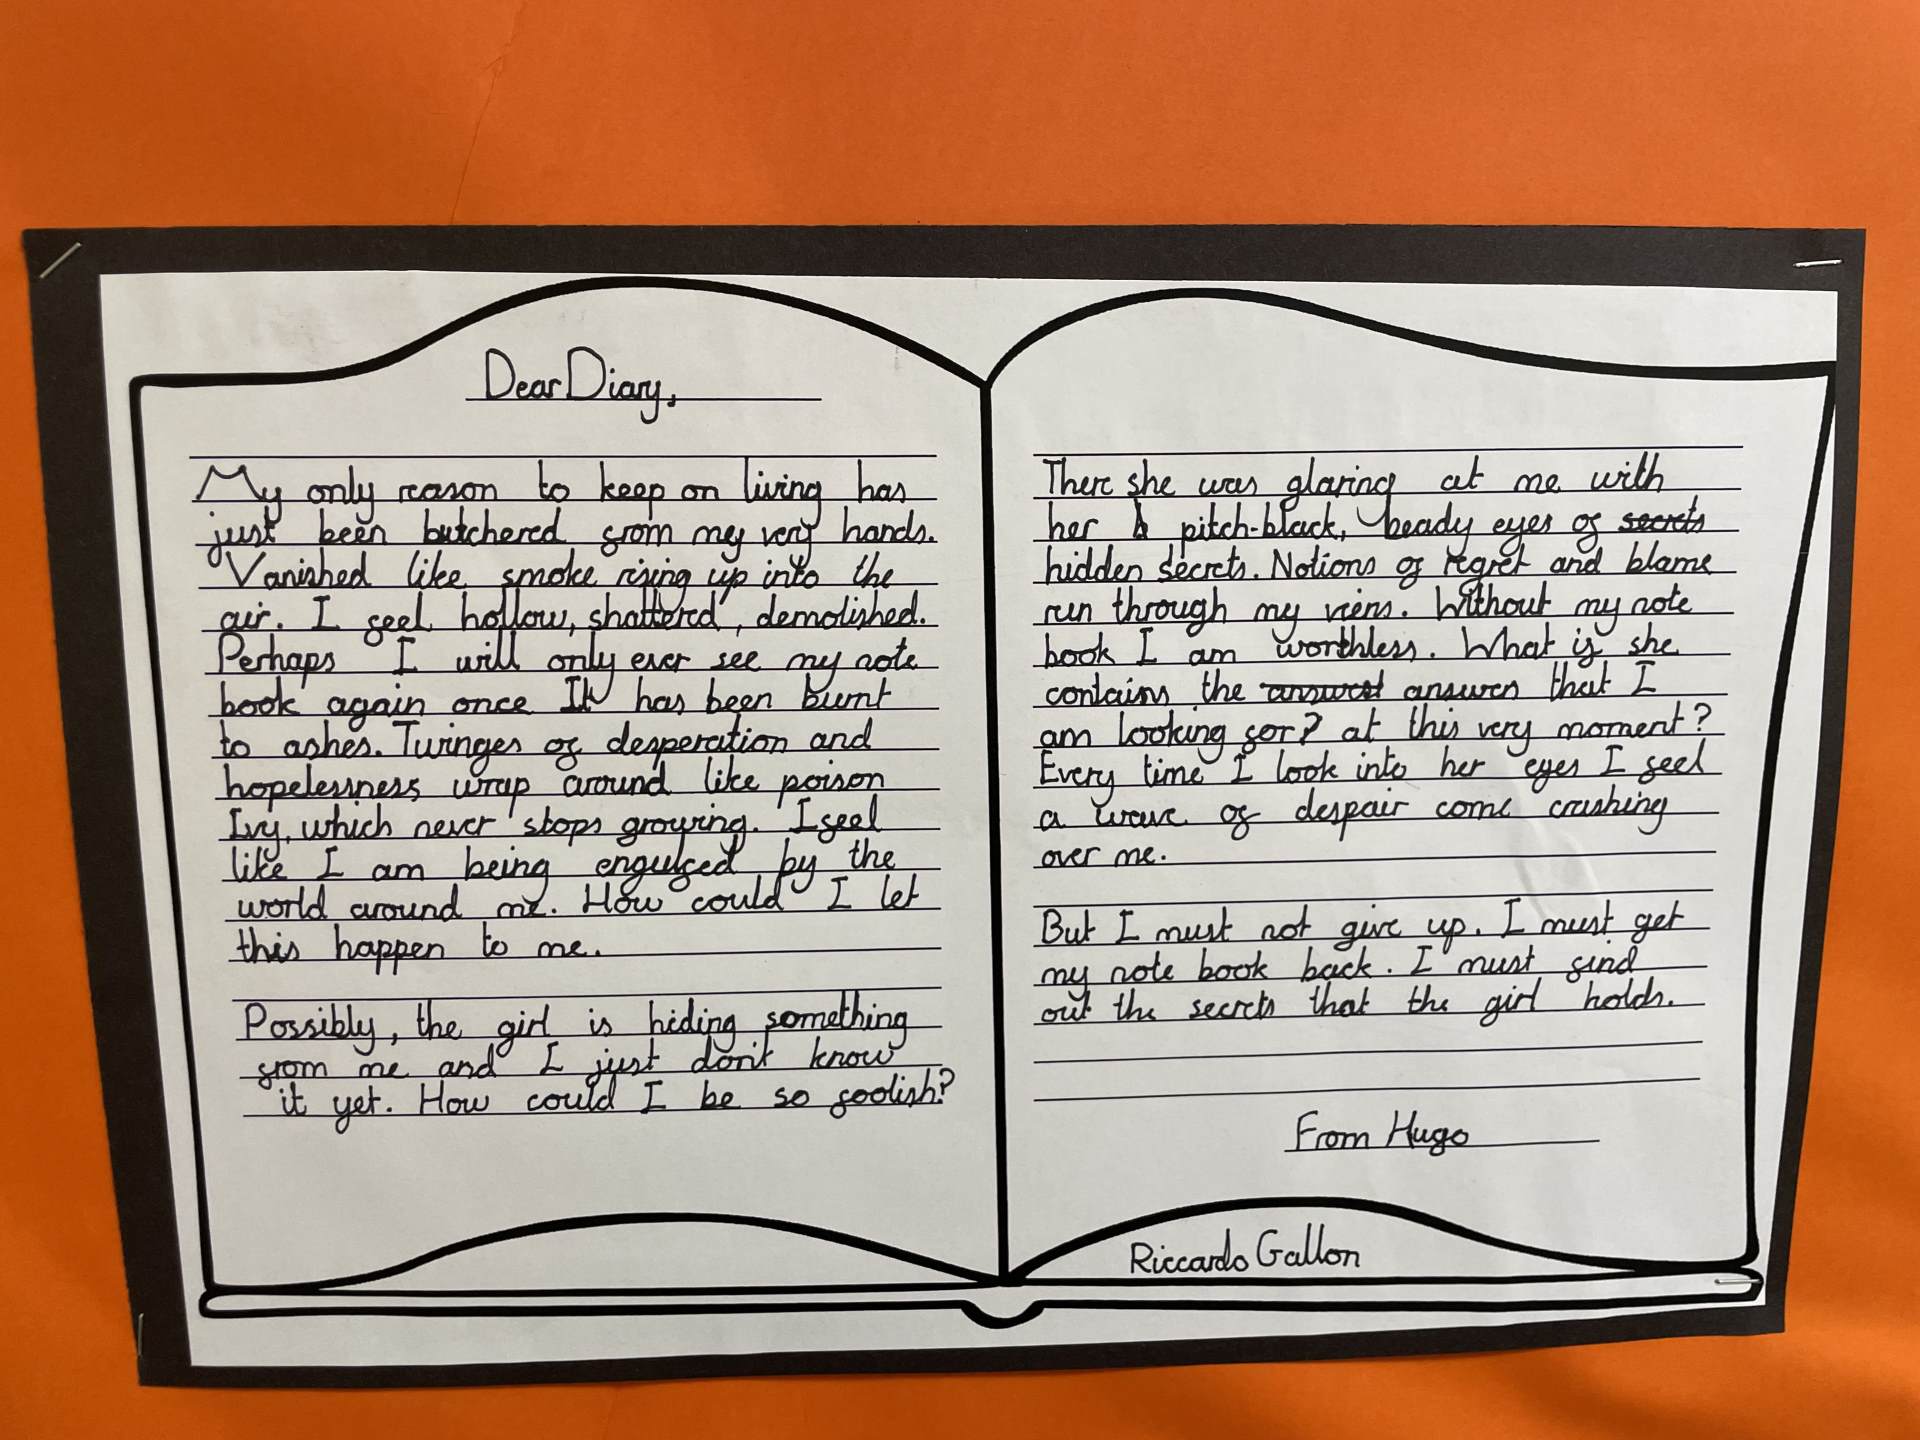 Dear Diary,
My only reason to keep on living has
just been butchered from my very hands.
Vanished like smoke rising up into the
air. I feel hollow, shattered, demolished.
Perhaps I will only ever see my note
book again once It has been burnt
to ashes. Twinges of desperation and
hopelessness wrap around like poison
Ivy, which never stops growing. I feel
like I am being engulfed by the
world around me. How could I let
this happen to me.
Possibly, the girl is hiding something
from me and I just don't know
it yet. How could I be so foolish?
There she was glaring at me with
her pitch-black, beady eyes of secrets
hidden secrets. Notions of regret and blame
run through my viens. Without my note
book I am worthless. What if she
contains the answers that I
am looking for? at this very moment?
Every time I look into her eyes I feel
a wave of despair come crashing
over me.
But I must not give up. I must get
my note book back. I must find
out the secrets that the girl holds.
From Hugo
Riccardo Gallon